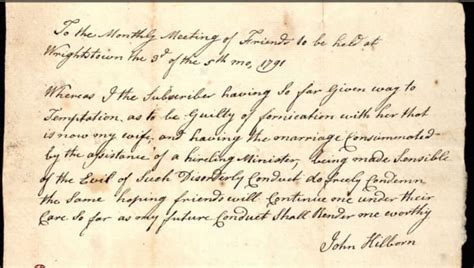 To the Monthly Meeting of Friends to be held at
Wrightstown the 3d of the 5th mo, 1791
Whereas I the Subscriber having So far Given way to
Temptation, as to be Guilty of fornication with her that
is now my wife, and having the marriage Consummated
by the assistance of a hireling Minister, being made Sensible
of the Evil of Such Disorderly Conduct do freely Condemn
the Same hoping friends will Continue me under their
Care So far as my future Conduct Shall Render me worthy
John Hilborn